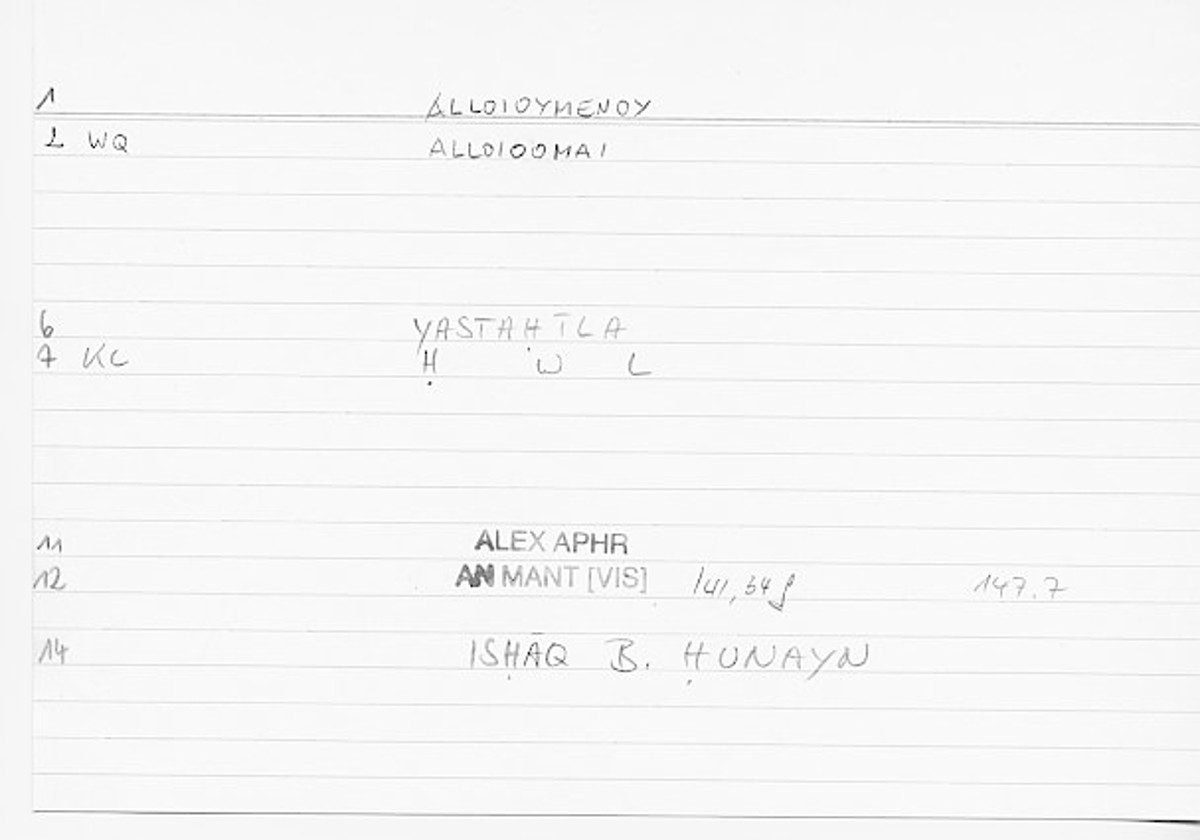 1 ALLOIOYMENOY
2 WQ ALLOIOOMAI
6 YASTAḤĪLA
7 KL Ḥ W L
11 ALEX APHR
12 AN MANT [VIS] 141,34f 147.7
14 ISḤĀQ B. ḤUNAYN